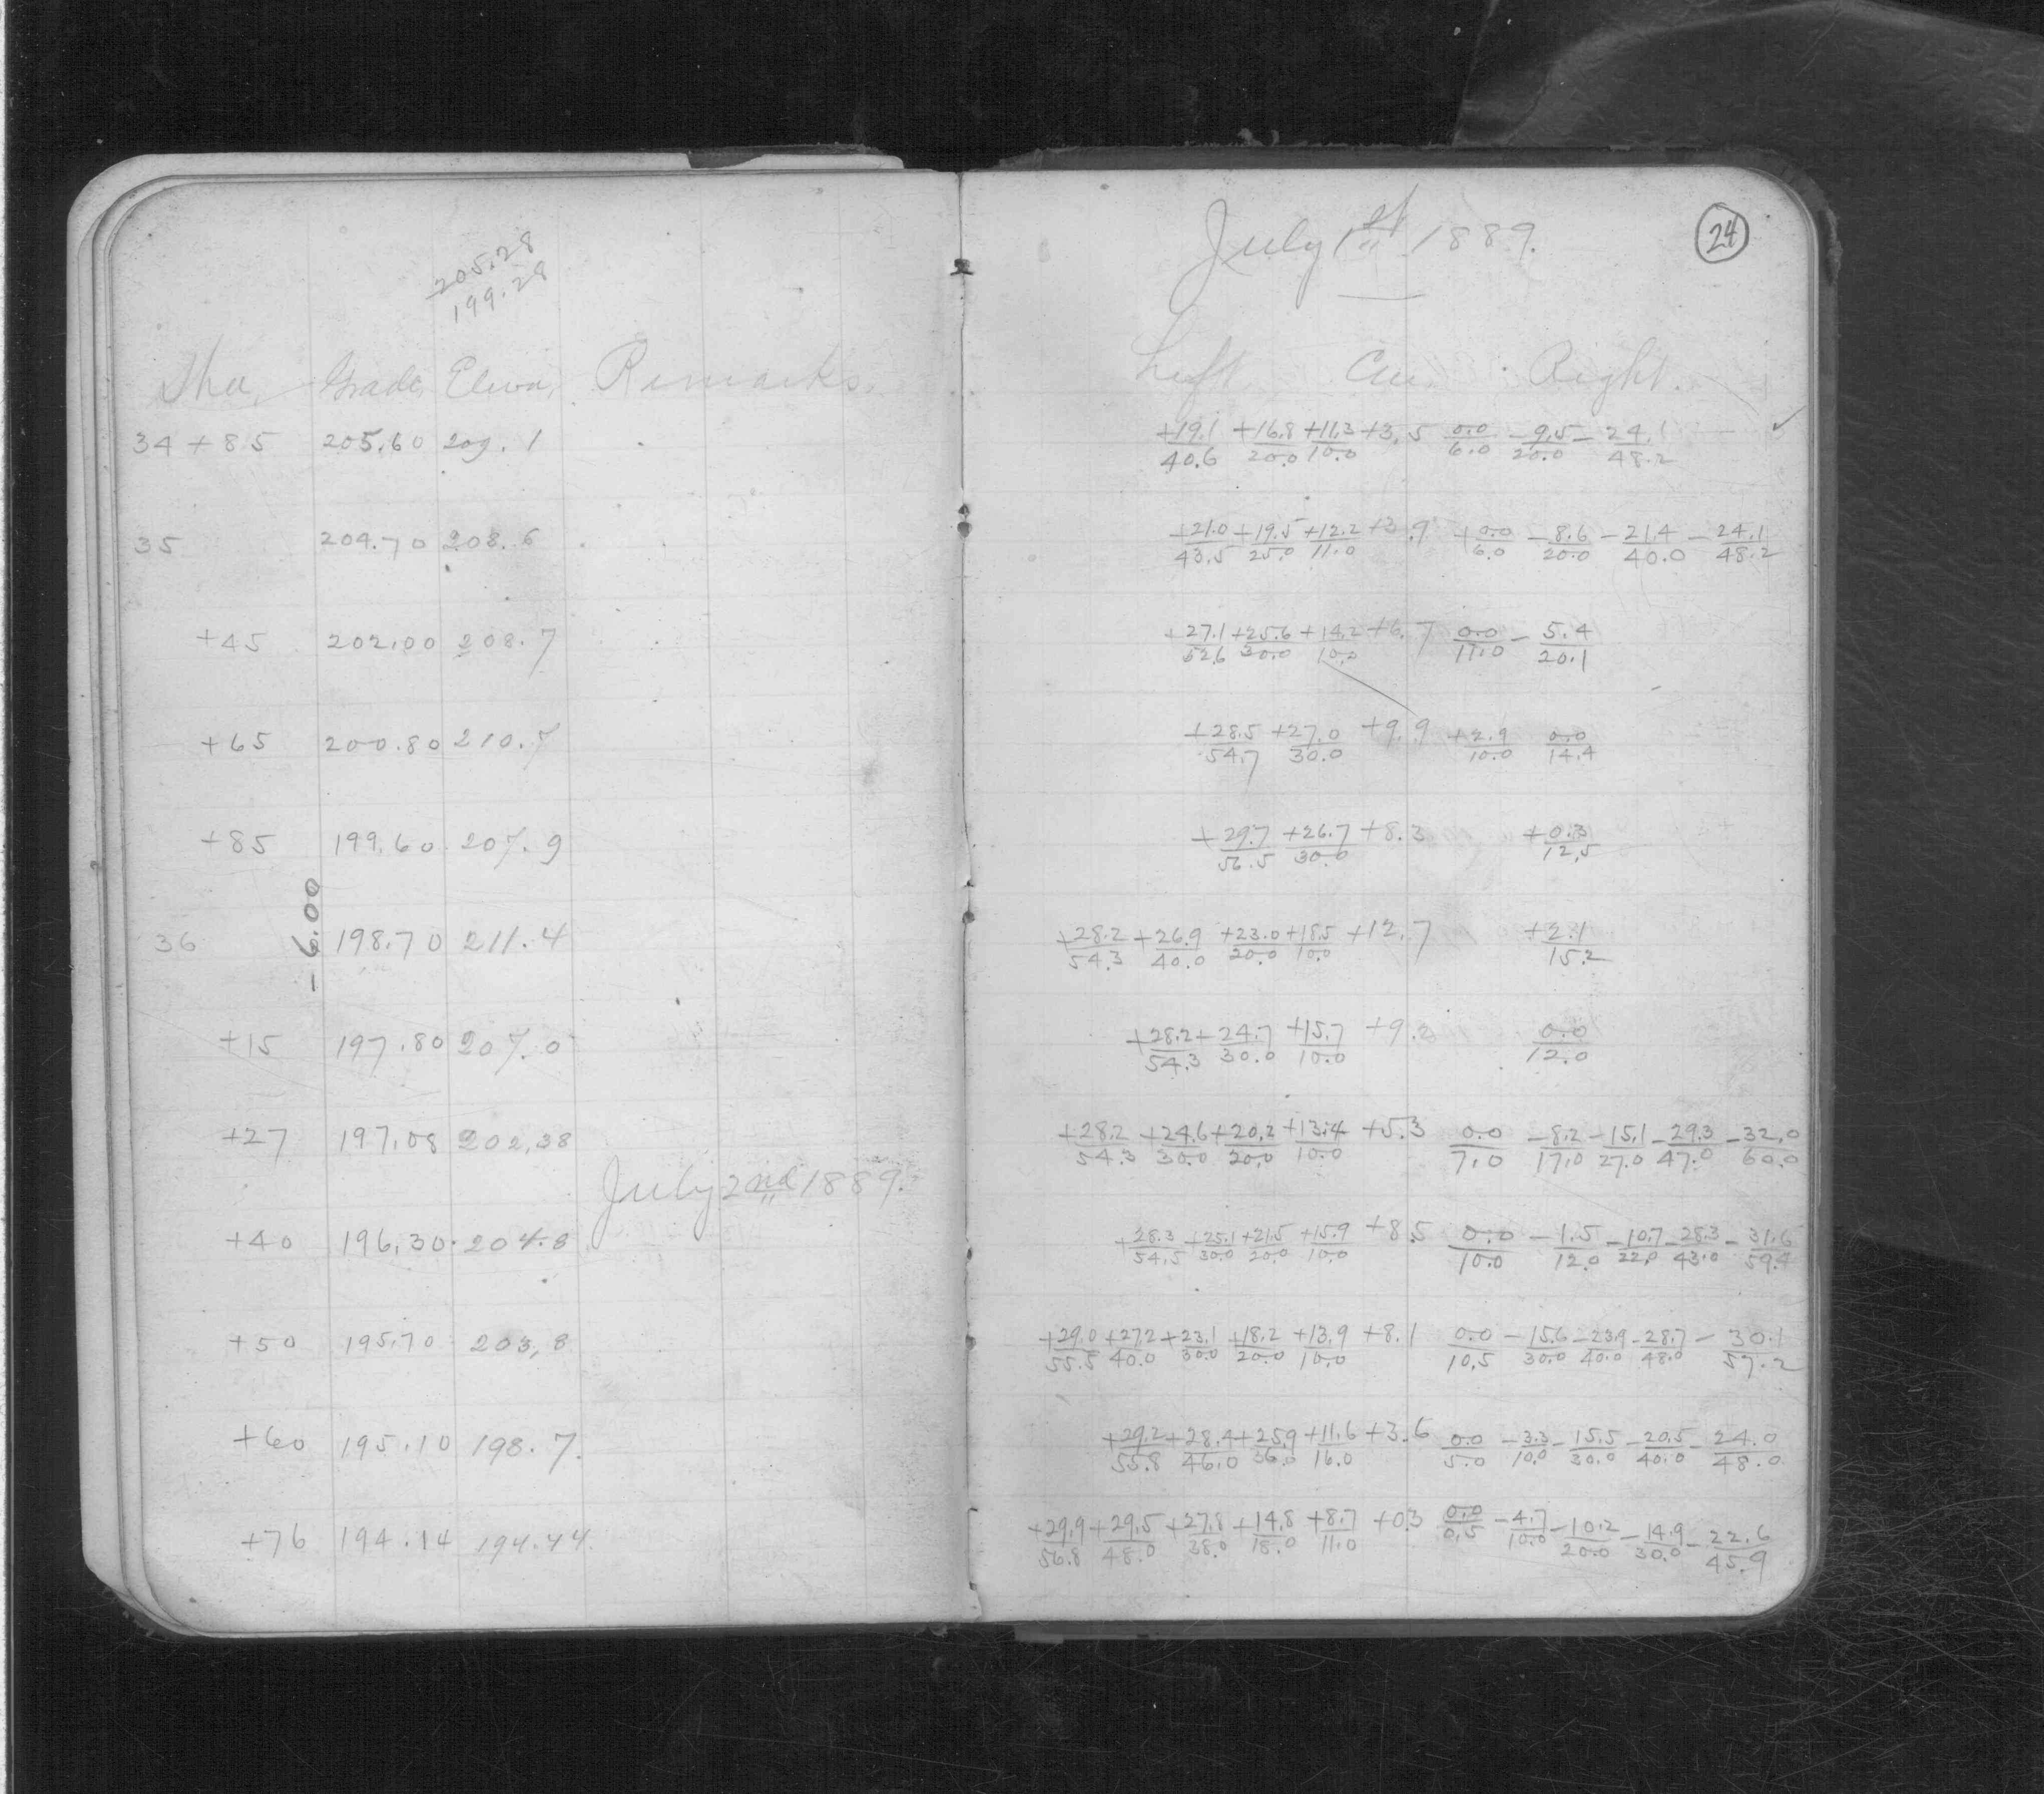 205.28
199.28
Sta. Grade Eleva. Remarks.
34 + 85 205.60 209.1
35 204.70 208.6
+45 202.00 208.7
+65 200.80 210.7
+85 199.60 207.9
-6.00
36 198.70 211.4
+15 197.80 207.0
+27 197.08 202.38
July 2nd 1889.
+40 196.30 204.8
+50 195.70 203.8
+60 195.10 198.7.
+76 194.14 194.44.
24
July 1st 1889.
Left Cen. Right.
+19.1/40.6 +16.8/20.0 +11.3/10.0 +3.5 0.0/6.0 -9.5/20.0 -24.1/48.2 ✓
+21.0/43.5 +19.5/25.0 +12.2/11.0 +3.9 +0.0/6.0 -8.6/20.0 -21.4/40.0 -24.1/48.2
+27.1/52.6 +25.6/30.0 +14.2/10.0 +6.7 0.0/11.0 -5.4/20.1
+28.5/54.7 +27.0/30.0 +9.9 +2.9/10.0 0.0/14.4
+29.7/56.5 +26.7/30.0 +8.3 +0.3/12.5
+28.2/54.3 +26.9/40.0 +23.0/20.0 +18.5/10.0 +12.7 +2.1/15.2
+28.2/54.3 +24.7/30.0 +15.7/10.0 +9.2 0.0/12.0
+28.2/54.3 +24.6/30.0 +20.2/20.0 +13.4/10.0 +5.3 0.0/7.0 -8.2/17.0 -15.1/27.0 -29.3/47.0 -32.0/60.0
+28.3/54.5 +25.1/30.0 +21.5/20.0 +15.9/10.0 +8.5 0.0/10.0 -1.5/12.0 -10.7/22.0 -28.3/43.0 -31.6/59.4
+29.0/55.5 +27.2/40.0 +23.1/30.0 +18.2/20.0 +13.9/10.0 +8.1 0.0/10.5 -15.6/30.0 -23.9/40.0 -28.7/48.0 -30.1/57.2
+29.2/55.8 +28.4/46.0 +25.9/36.0 +11.6/16.0 +3.6 0.0/5.0 -3.3/10.0 -15.5/30.0 -20.5/40.0 -24.0/48.0
+29.9/56.8 +29.5/48.0 +27.8/38.0 +14.8/18.0 +8.7/11.0 +0.3 0.0/0.5 -4.7/10.0 -10.2/20.0 -14.9/30.0 -22.6/45.9